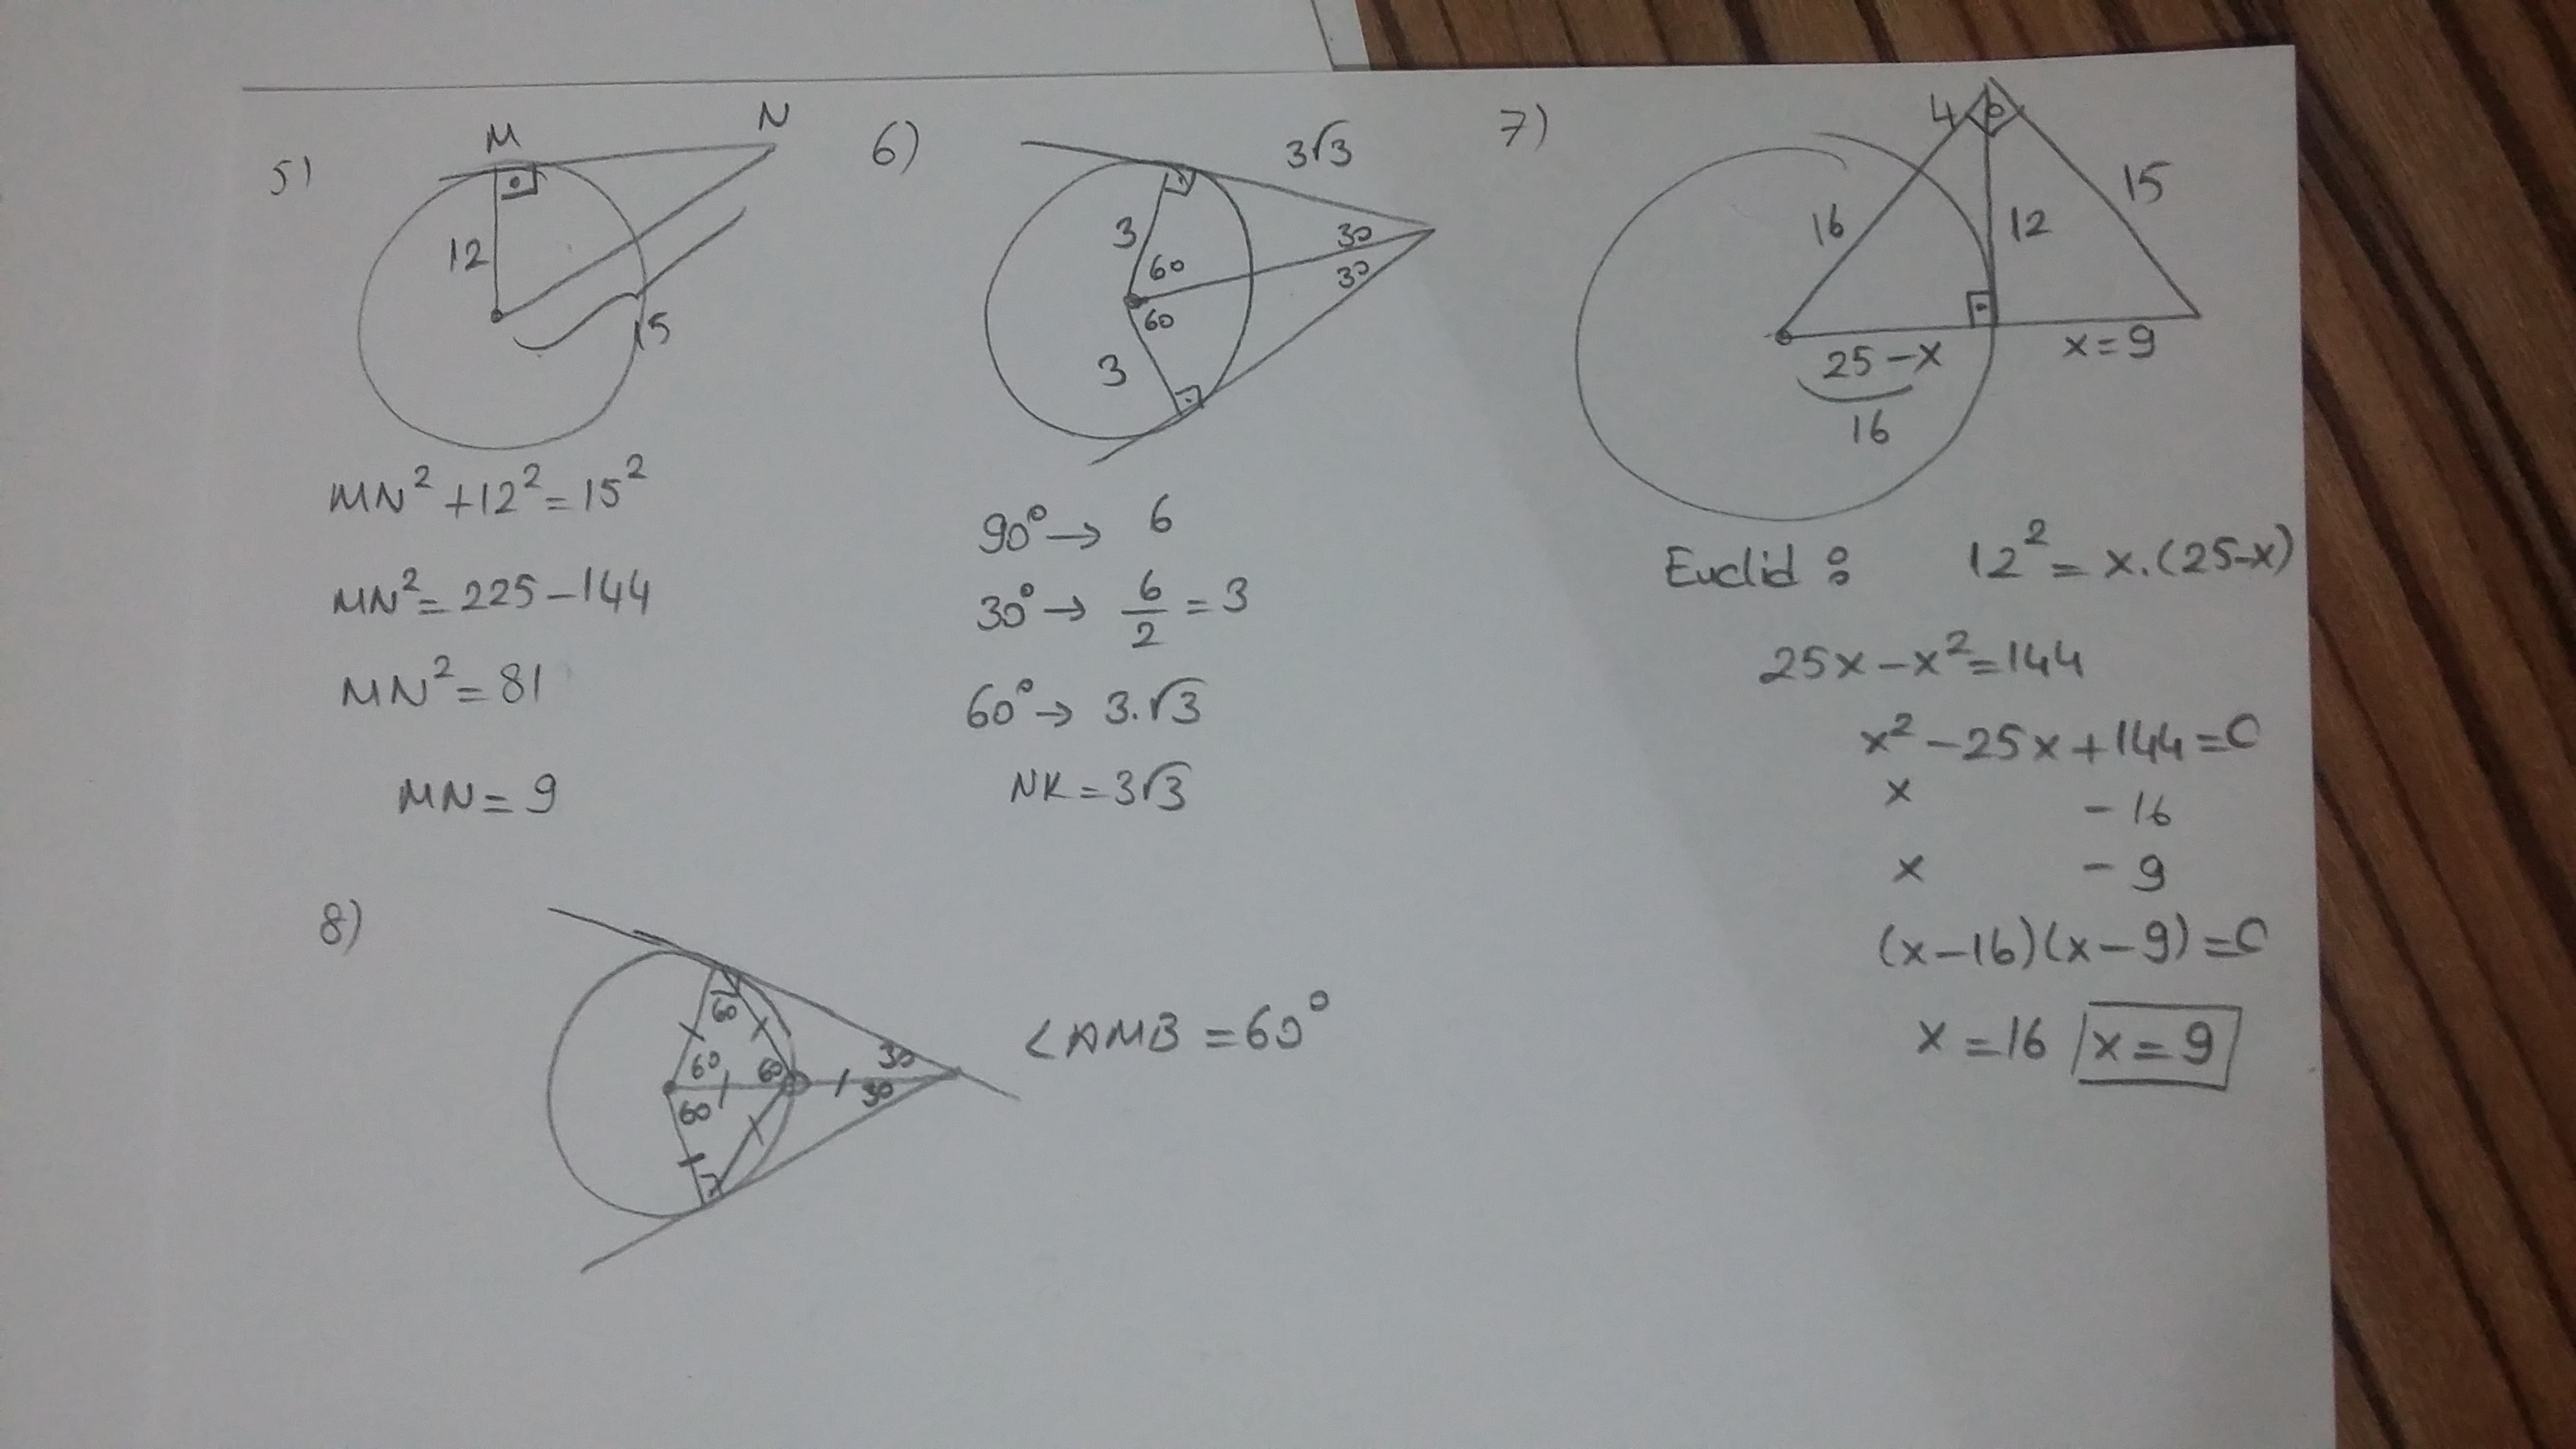 5)
M
N
12
15
MN² + 12² = 15²
MN² = 225 - 144
MN² = 81
MN = 9
6)
3√3
3
60
30
30
60
3
90° → 6
30° → 6/2 = 3
60° → 3.√3
NK = 3√3
7)
4
16
12
15
25 - x
x = 9
16
Euclid : 12² = x.(25-x)
25x - x² = 144
x² - 25x + 144 = 0
x - 16
x - 9
(x-16)(x-9) = 0
x = 16 x = 9
8)
60
60
60
60
30
30
<AMB = 60°